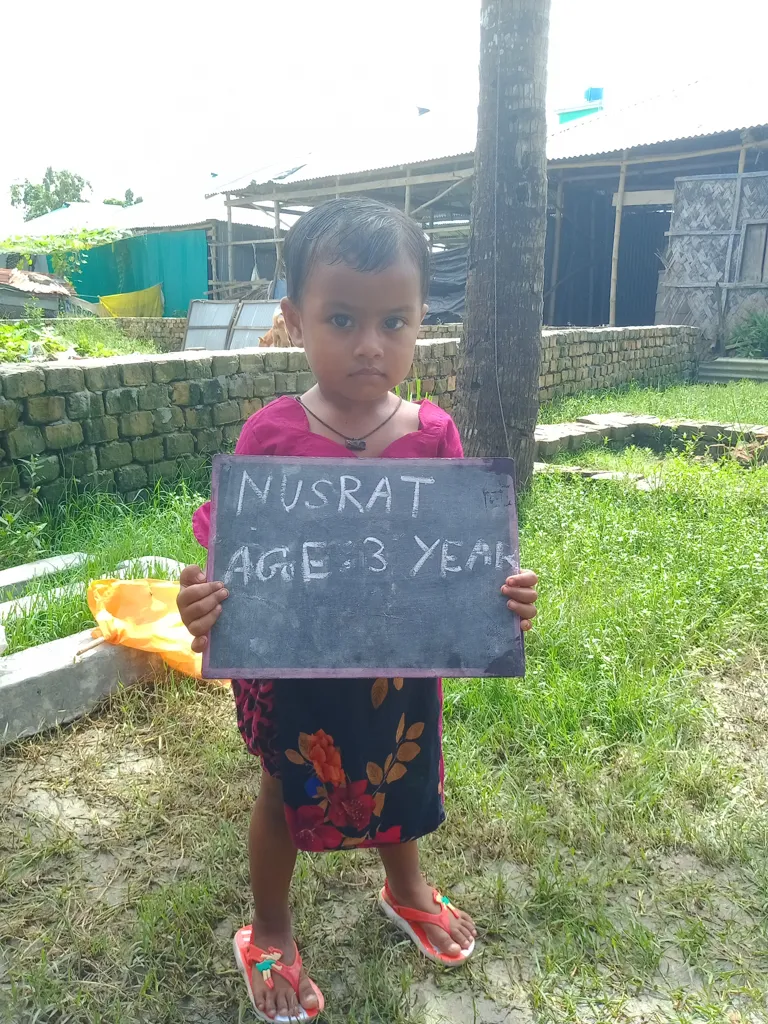 NUSRAT
AGE:3 YEAR